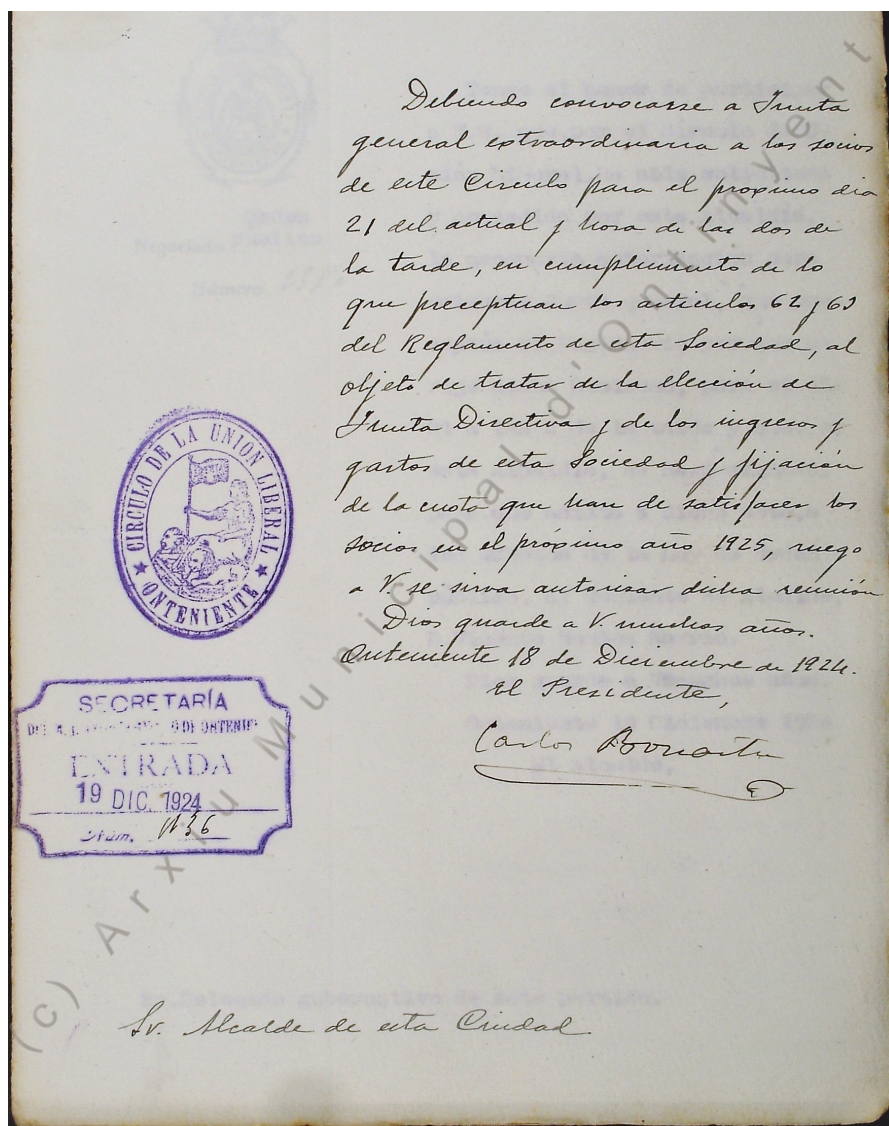 Debiendo convocarse a Junta
general extraordinaria a los socios
de este Circulo para el proximo dia
21 del actual y hora de las dos de
la tarde, en cumplimiento de lo
que preceptuan los articulos 62 y 63
del Reglamento de esta Sociedad, al
objeto de tratar de la elección de
Junta Directiva y de los ingresos y
gastos de esta Sociedad y fijación
de la cuota que han de satisfacer los
socios en el próximo año 1925, ruego
a V. se sirva autorizar dicha reunión
Dios guarde a V. muchos años.
Onteniente 18 de Diciembre de 1924.
El Presidente,
Carlos
CIRCULO DE LA UNION LIBERAL
ONTENIENTE
SECRETARÍA
ENTRADA
19 DIC. 1924
Núm. 1136
Sr. Alcalde de esta Ciudad
(c) Arxiu Municipal d'Ontinyent